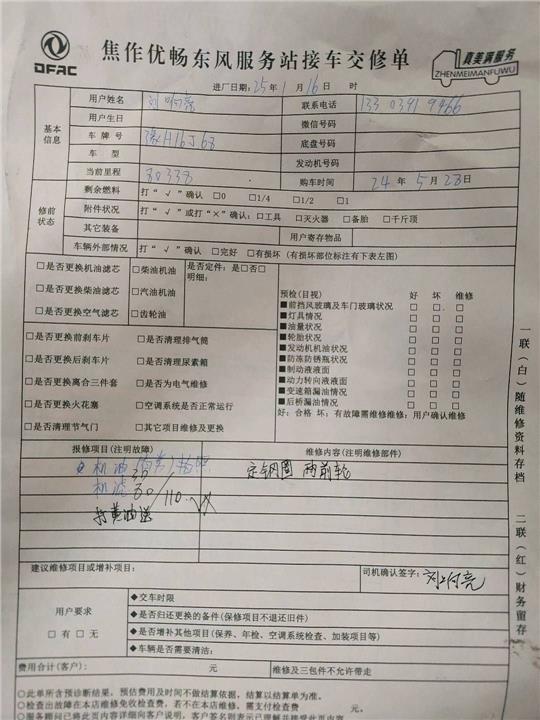 DFAC
焦作优畅东风服务站接车交修单
真美满服务
ZHENMEIMANFUWU
进厂日期：25年1月16日 时
基本信息
用户姓名 联系电话
用户生日 微信号码
车牌号 底盘号码
车 型 发动机号码
当前里程 80338 购车时间 24年5月28日
修前状态
剩余燃料 打“√”确认 □0 □1/4 □1/2 □1
附件状况 打“√”或打“×”确认：□工具 □灭火器 □备胎 □千斤顶
其它装备 用户寄存物品
车辆外部情况 打“√”确认 □完好 □有损坏（有损坏部位标注有下表左图）
□是否更换机油滤芯 □柴油机油 是否定件：是□否□
明细：
□是否更换柴油滤芯 □汽油机油
□是否更换空气滤芯 □齿轮油
□是否更换前刹车片 □是否清理排气筒
□是否更换后刹车片 □是否清理尿素箱
□是否更换离合三件套 □是否为电气维修
□是否更换火花塞 □空调系统是否正常运行
□是否清理节气门 □其它项目维修及更换
预检(目视) 好 坏 维修
■前挡风玻璃及车门玻璃状况 □ □ □
■灯具情况 □ □ □
■油量状况 □ □ □
■轮胎状况 □ □ □
■发动机机油状况 □ □ □
■防冻防锈瓶状况 □ □ □
■制动液液面 □ □ □
■动力转向液液面 □ □ □
■变速箱漏油情况 □ □ □
■后桥漏油情况 □ □ □
好：合格 坏：有故障需维修维修：用户确认维修
报修项目(注明故障) 维修内容(注明维修部件)
机油
机滤 30/110
打黄油
定钢圈 两前轮
建议维修项目或增补项目： 司机确认签字：
用户要求
□有□无
◆交车时限
◆是否归还更换的备件(保修项目不退还旧件)
◆是否增补其他项目(保养、年检、空调系统检查、加装项目等)
◆车辆是否需要清洁：
费用合计(客户)： 元 维修及三包件不允许带走
○此单所含预诊断结果，预估费用及时间不做结算依据，结算以结算单为准。
○检查出故障在本店维修免收检查费，若不在本店维修，需支付检查费 元。
○服务顾问已将此页内容详细向客户说明，客户签名则表示已理解并接受此页内容。
一联(白)随维修资料存档 二联(红)财务留存